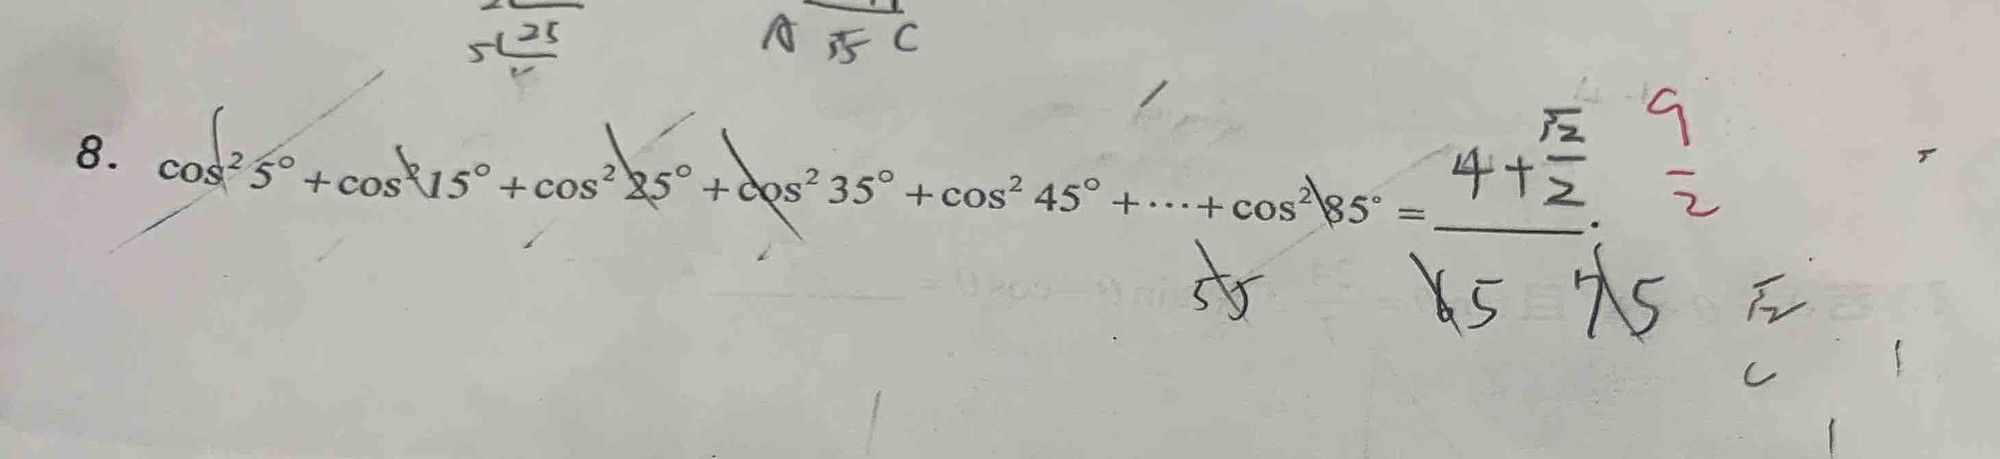 5 25
A √5 C
8. cos² 5° + cos² 15° + cos² 25° + cos² 35° + cos² 45° + ⋯ + cos² 85° = 4 + √2/2 . 9/2
55 65 75 √2